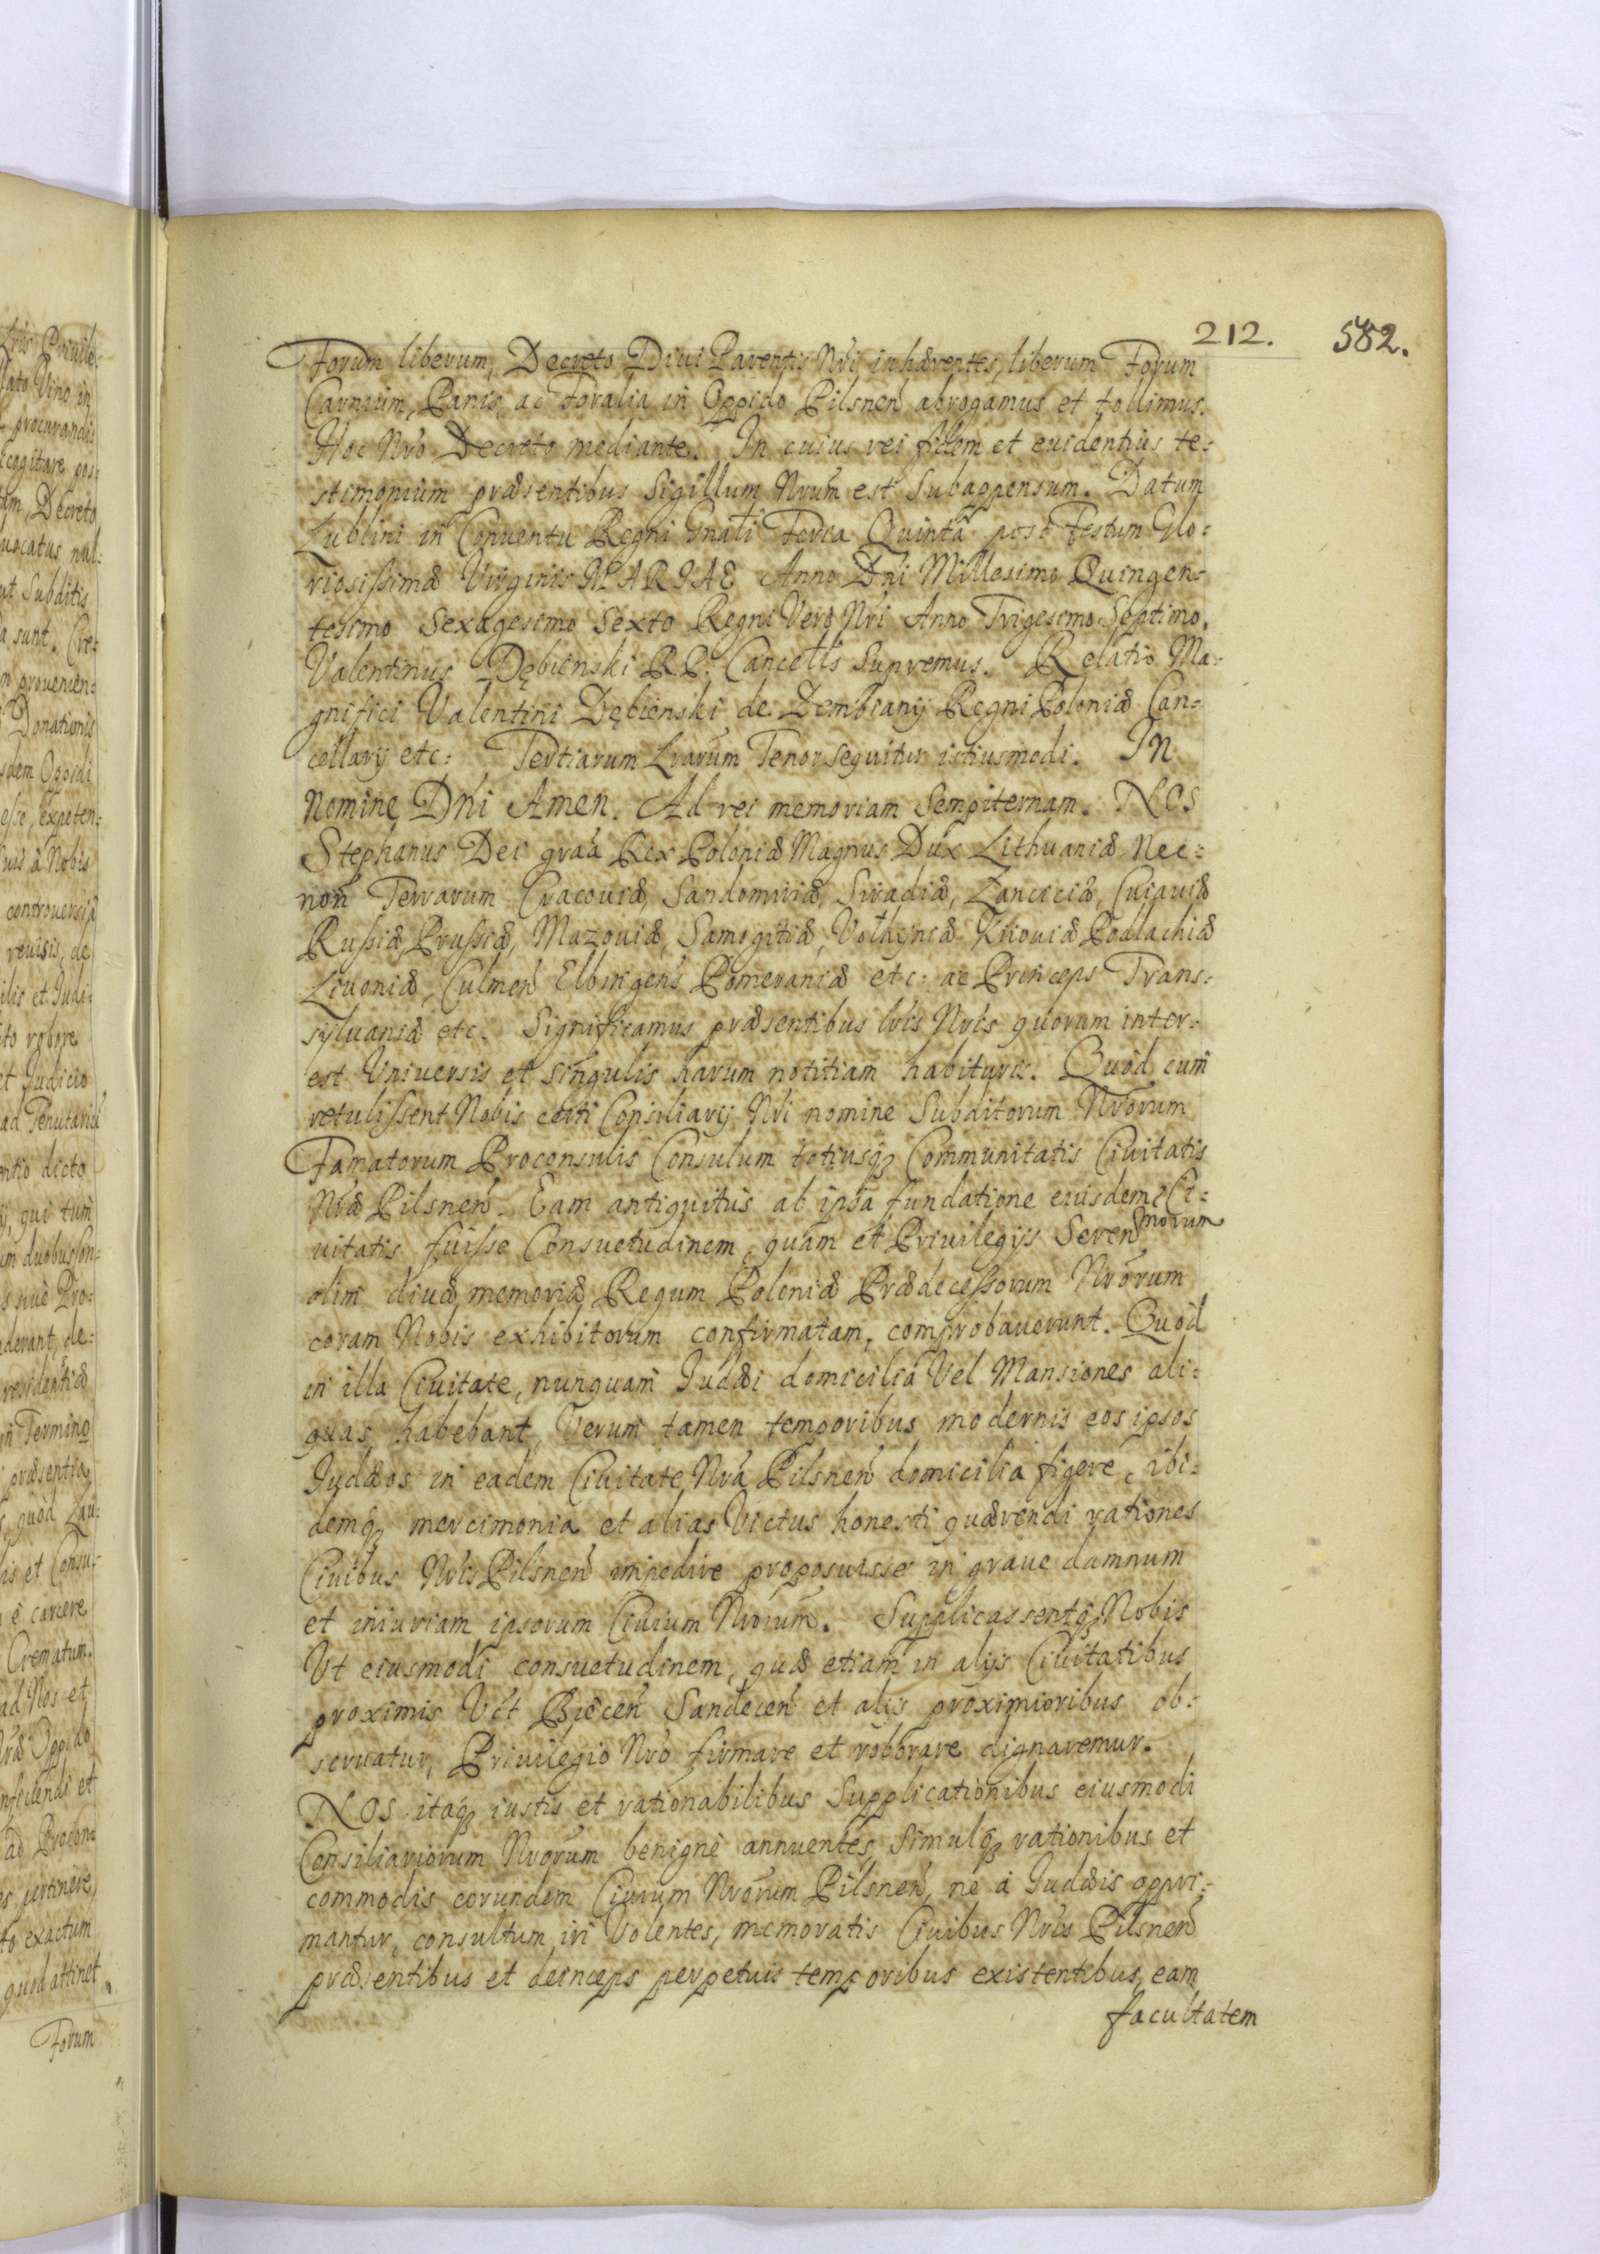 212. 582.
Forum liberum, Decreto Diui Parentis Nri inhærentes, liberum Forum
Carnium, Panis, ac Foralia in Oppido Pilsnen abrogamus et tollimus.
Hoc Nro Decreto mediante. In cuius rei fidem et euidentius te-
stimonium præsentibus Sigillum Nrum est Subappensum. Datum
Lublini in Conuentu Regni Gnali Feria Quinta post Festum Glo-
riosissimæ Virginis MARIAE Anno Dni Millesimo Quingen-
tesimo Sexagesimo Sexto Regni Vero Nri Anno Trigesimo Septimo.
Valentinus Dębienski RP. Cancells Supremus. Relatio Ma-
gnifici Valentini Dębienski de Dembiany Regni Poloniæ Can-
cellarij etc: Tertiarum Lrarum Tenor sequitur istiusmodi. IN
Nomine Dni Amen. Ad rei memoriam Sempiternam. NOS
Stephanus Dei graa Rex Poloniæ Magnus Dux Lithuaniæ Nec-
non Terrarum Cracouiæ, Sandomiriæ, Siradiæ, Lanciciæ, Cuiauiæ
Russiæ, Prussiæ, Mazouiæ, Samogitiæ, Volhyniæ Kiiouiæ Podlachiæ
Liuoniæ, Culmen Elbingens Pomeraniæ etc: ac Princeps Trans-
syluaniæ etc. Significamus præsentibus lris Nris quorum inter-
est Vniuersis et singulis harum notitiam habituris. Quod cum
retulissent Nobis certi Consiliarij Nri nomine Subditorum Nrorum
Famatorum Proconsulis Consulum totiusq; Communitatis Ciuitatis
Nræ Pilsnen. Eam antiquitus ab ipsa fundatione eiusdem Ci-
uitatis fuisse Consuetudinem, quam et Priuilegijs Serenmorum
olim diuæ memoriæ Regum Poloniæ Prædecessorum Nrorum
coram Nobis exhibitorum confirmatam, comprobauerunt. Quod
in illa Ciuitate, nunquam Judæi domicilia Vel Mansiones ali-
quas habebant, Verum tamen temporibus modernis eos ipsos
Judæos in eadem Ciuitate Nra Pilsnen domicilia figere, ibi-
demq; mercimonia et alias Victus honesti quærendi rationes
Ciuibus Nris Pilsnen impedire proposuisse in graue damnum
et iniuriam ipsorum Ciuium Nrorum. Supplicassentq; Nobis
Vt eiusmodi consuetudinem, quæ etiam in alijs Ciuitatibus
proximis Vt Biecen Sandecen et alijs proximioribus ob-
seruatur, Priuilegio Nro firmare et robborare dignaremur.
NOS itaq; iustis et rationabilibus Supplicationibus eiusmodi
Consiliariorum Nrorum benignè annuentes, simulq; rationibus et
commodis eorundem Ciuium Nrorum Pilsnen, ne à Judæis oppri-
mantur, consultum iri Volentes, memoratis Ciuibus Nris Pilsnen
præsentibus et deinceps perpetuis temporibus existentibus, eam
facultatem